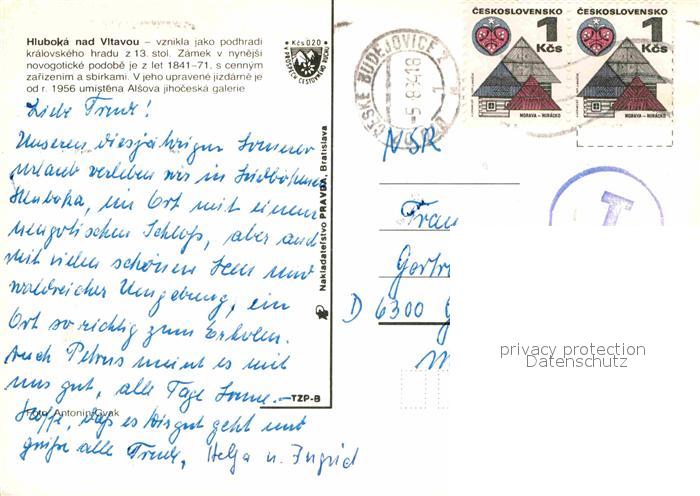 Hluboká nad Vltavou – vznikla jako podhradí
královského hradu z 13. stol. Zámek v nynější
novogotické podobě je z let 1841–71, s cenným
zařízením a sbírkami. V jeho upravené jízdárně je
od r. 1956 umístěna Alšova jihočeská galerie
Kčs 0,20
Liebe Trude!
Unseren diesjährigen Sommer-
urlaub verleben wir in Südböhmen
Hluboka, ein Ort mit einem
neugotischen Schloß, aber auch
mit vielen schönen Seen und
waldreicher Umgebung, ein
Ort so richtig zum Erholen.
Auch Petrus meint es mit
uns gut, alle Tage Sonne.
Hoffe, daß es Dir gut geht und
grüße alle Trude, Helga u. Ingrid
Foto Antonín
TZP-B
Nakladateľstvo PRAVDA, Bratislava
ČESKÉ BUDĚJOVICE 2
ČESKOSLOVENSKO
1 Kčs
MORAVA – HORÁCKO
ČESKOSLOVENSKO
1 Kčs
MORAVA – HORÁCKO
T
NSR
D 6300
privacy protection
Datenschutz